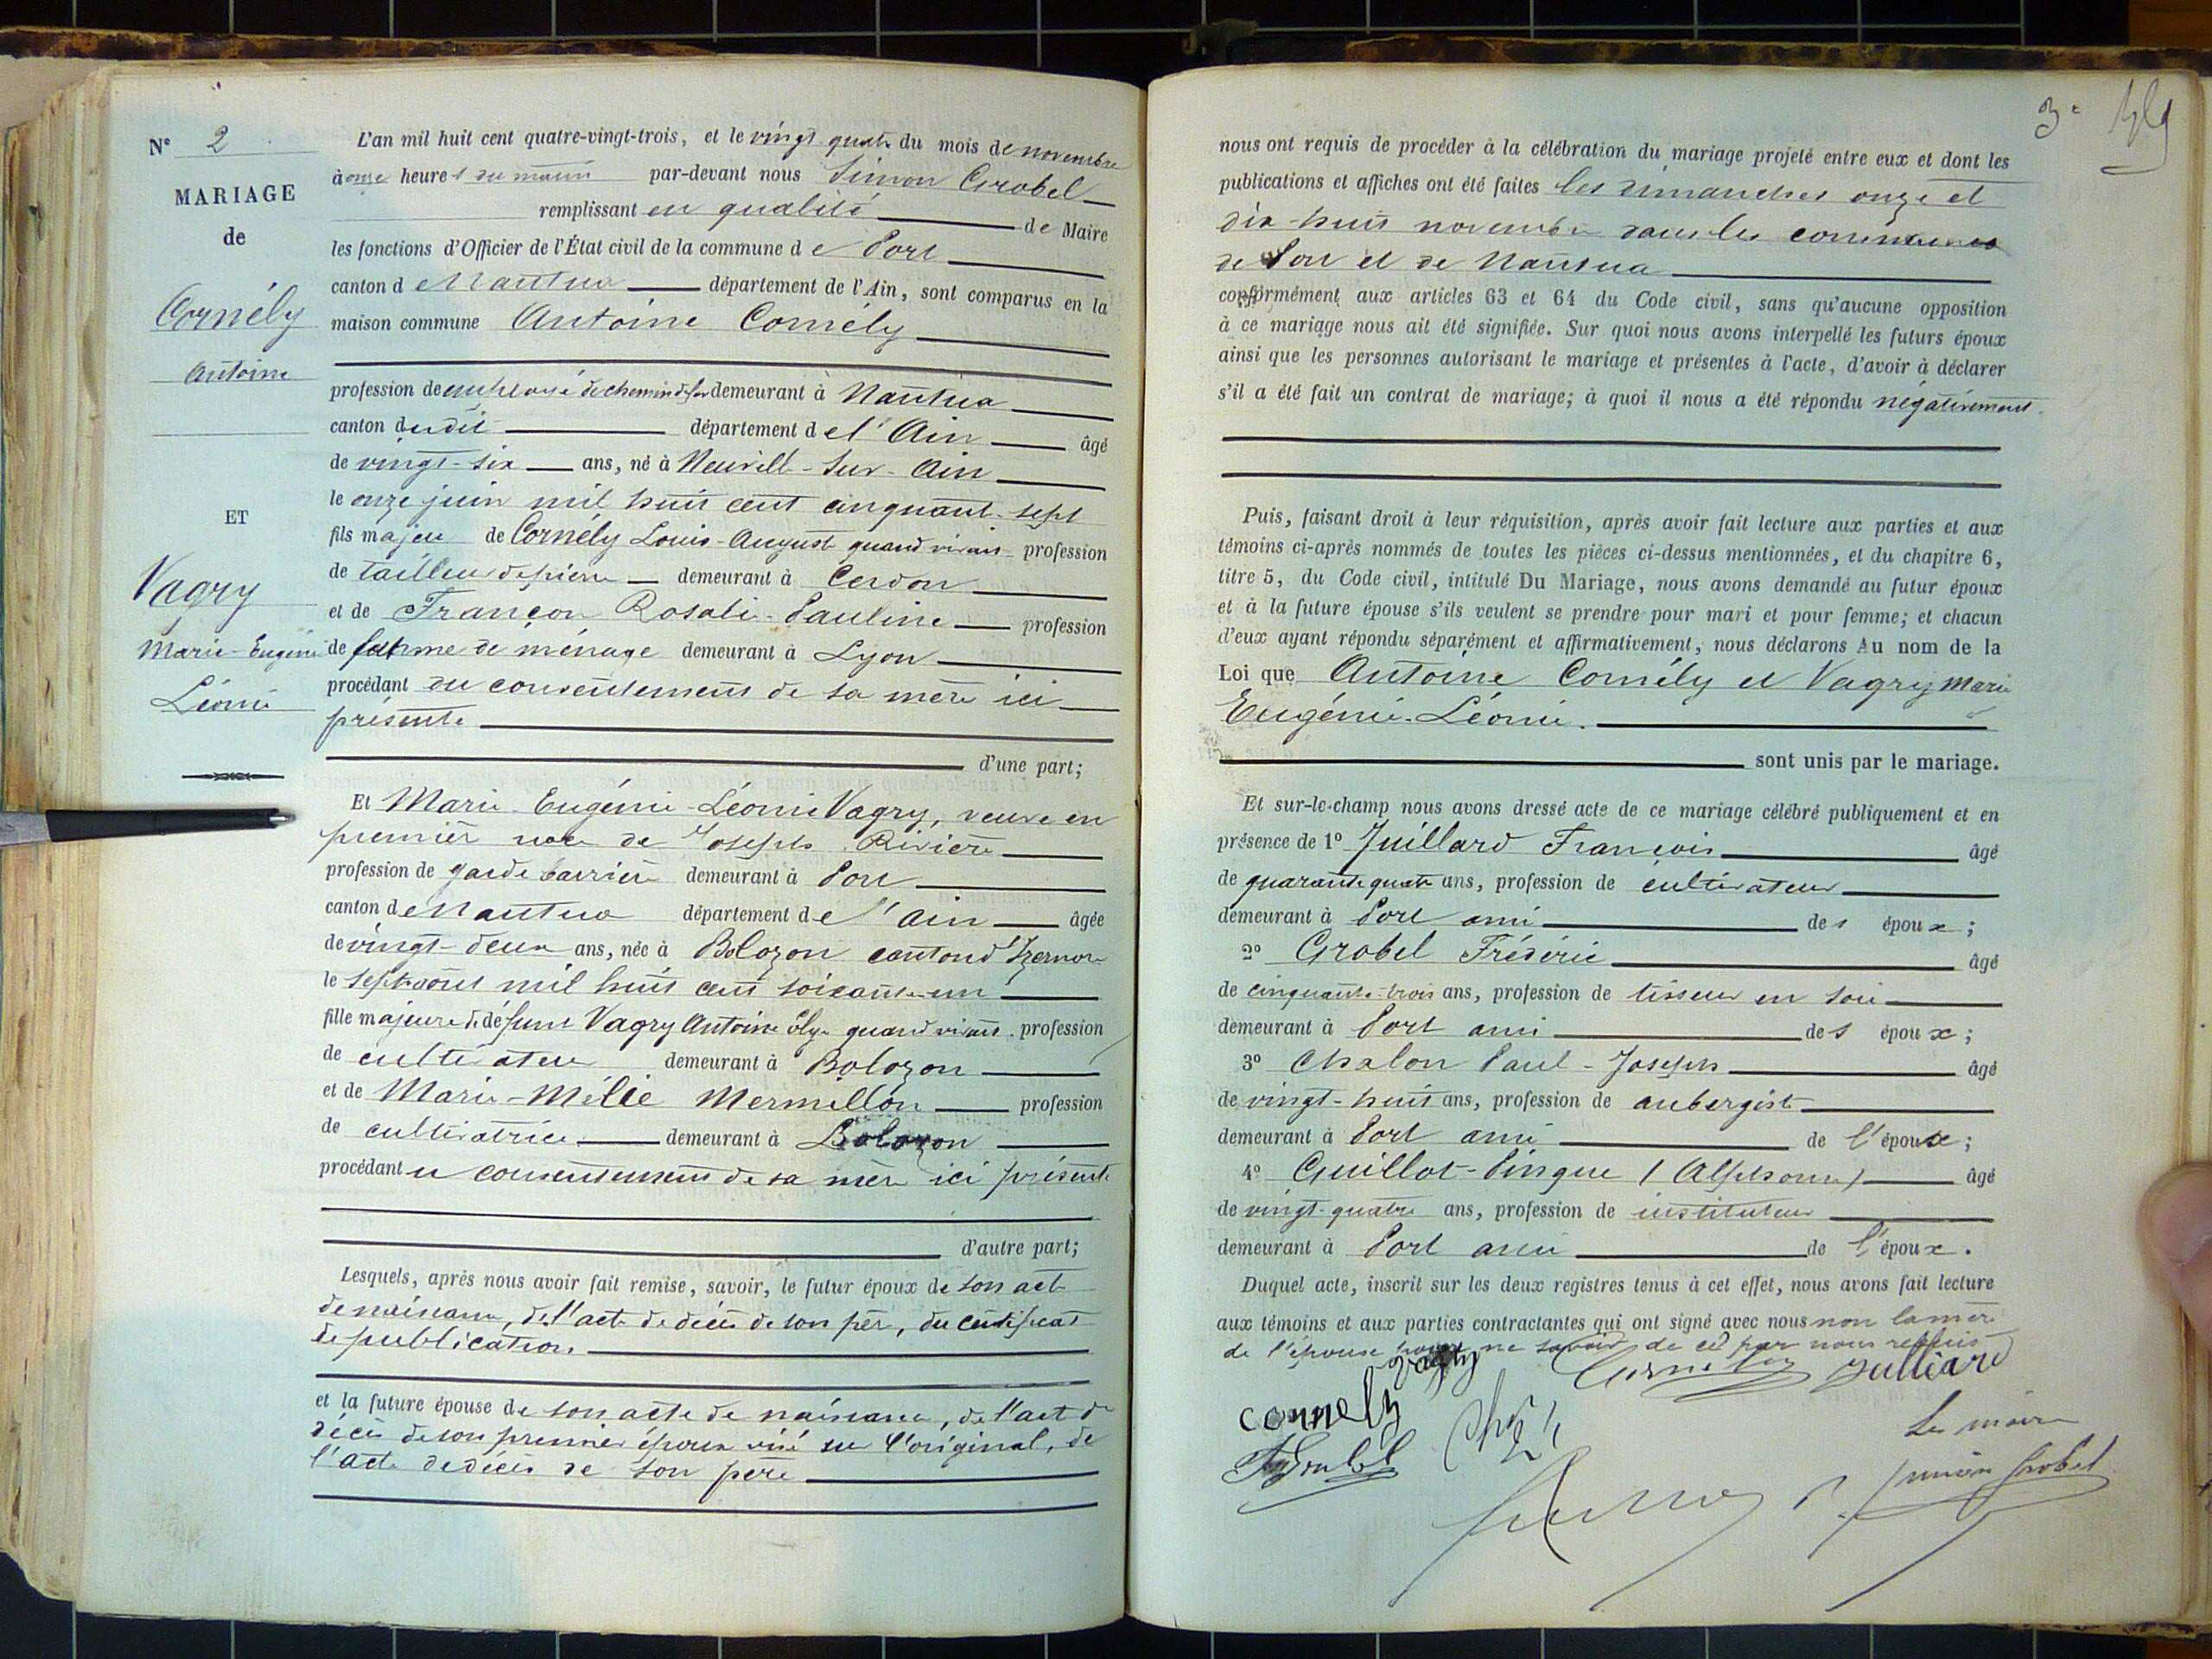 N° 2
MARIAGE
de
Cornély
Antoine
ET
Vagry
Marie-Eugénie
Léonie
L'an mil huit cent quatre-vingt-trois, et le vingt quatre du mois de novembre
à onze heures du matin par-devant nous Simon Grobel
remplissant en qualité de Maire
les fonctions d'Officier de l'État civil de la commune de Port
canton de Nantua département de l'Ain, sont comparus en la
maison commune Antoine Cornély
profession de employé de chemin de fer demeurant à Nantua
canton dudit département de l'Ain âgé
de vingt-six ans, né à Neuvill-sur-Ain
le onze juin mil huit cent cinquant-sept
fils majeu de Cornély Louis-August quand vivait profession
de tailleur de pierre demeurant à Cerdon
et de Françon Rosalie-Pauline profession
de femme de ménage demeurant à Lyon
procédant du consentement de sa mère ici
présente
d'une part;
Et Marie-Eugénie-Léonie Vagry, veuve en
premièr noce de Joseph Rivière
profession de garde barrière demeurant à Port
canton de Nantua département de l'Ain âgée
de vingt-deux ans, née à Bolozon canton d'Izernore
le sept août mil huit cent soixante-un
fille majeure de défunt Vagry Antoine quand vivait profession
de cultivateur demeurant à Bolozon
et de Marie-Mélie Mermillon profession
de cultivatrice demeurant à Bolozon
procédant du consentement de sa mère ici présente
d'autre part;
Lesquels, après nous avoir fait remise, savoir, le futur époux de son acte
de naissance, de l'acte de décès de son père, du certificat
de publication.
et la future épouse de son acte de naissance, de l'acte de
décès de son premier époux visé sur l'original, de
l'acte de décès de son père
3e
nous ont requis de procéder à la célébration du mariage projeté entre eux et dont les
publications et affiches ont été faites les dimanches onze et
dix-huit novembre dans les communes
de Port et de Nantua
conformément aux articles 63 et 64 du Code civil, sans qu'aucune opposition
à ce mariage nous ait été signifiée. Sur quoi nous avons interpellé les futurs époux
ainsi que les personnes autorisant le mariage et présentes à l'acte, d'avoir à déclarer
s'il a été fait un contrat de mariage; à quoi il nous a été répondu négativement.
Puis, faisant droit à leur réquisition, après avoir fait lecture aux parties et aux
témoins ci-après nommés de toutes les pièces ci-dessus mentionnées, et du chapitre 6,
titre 5, du Code civil, intitulé Du Mariage, nous avons demandé au futur époux
et à la future épouse s'ils veulent se prendre pour mari et pour femme; et chacun
d'eux ayant répondu séparément et affirmativement, nous déclarons Au nom de la
Loi que Antoine Cornély et Vagry Marie
Eugénie-Léonie.
sont unis par le mariage.
Et sur-le-champ nous avons dressé acte de ce mariage célébré publiquement et en
présence de 1° Juillard François âgé
de quarante quatre ans, profession de cultivateur
demeurant à Port ami des époux;
2° Grobel Frédéric âgé
de cinquante-trois ans, profession de tisseur en soie
demeurant à Port ami des époux;
3° Chalon Paul-Joseph âgé
de vingt-huit ans, profession de aubergiste
demeurant à Port ami de l'époux;
4° Guillot-Pingue (Alphonse) âgé
de vingt-quatre ans, profession de instituteur
demeurant à Port ami de l'époux.
Duquel acte, inscrit sur les deux registres tenus à cet effet, nous avons fait lecture
aux témoins et aux parties contractantes qui ont signé avec nous non la mère
de l'épouse pour ne savoir de ce par nous requis
Vagry Cornély Julliard
Cornely
Le maire
Simon Grobel